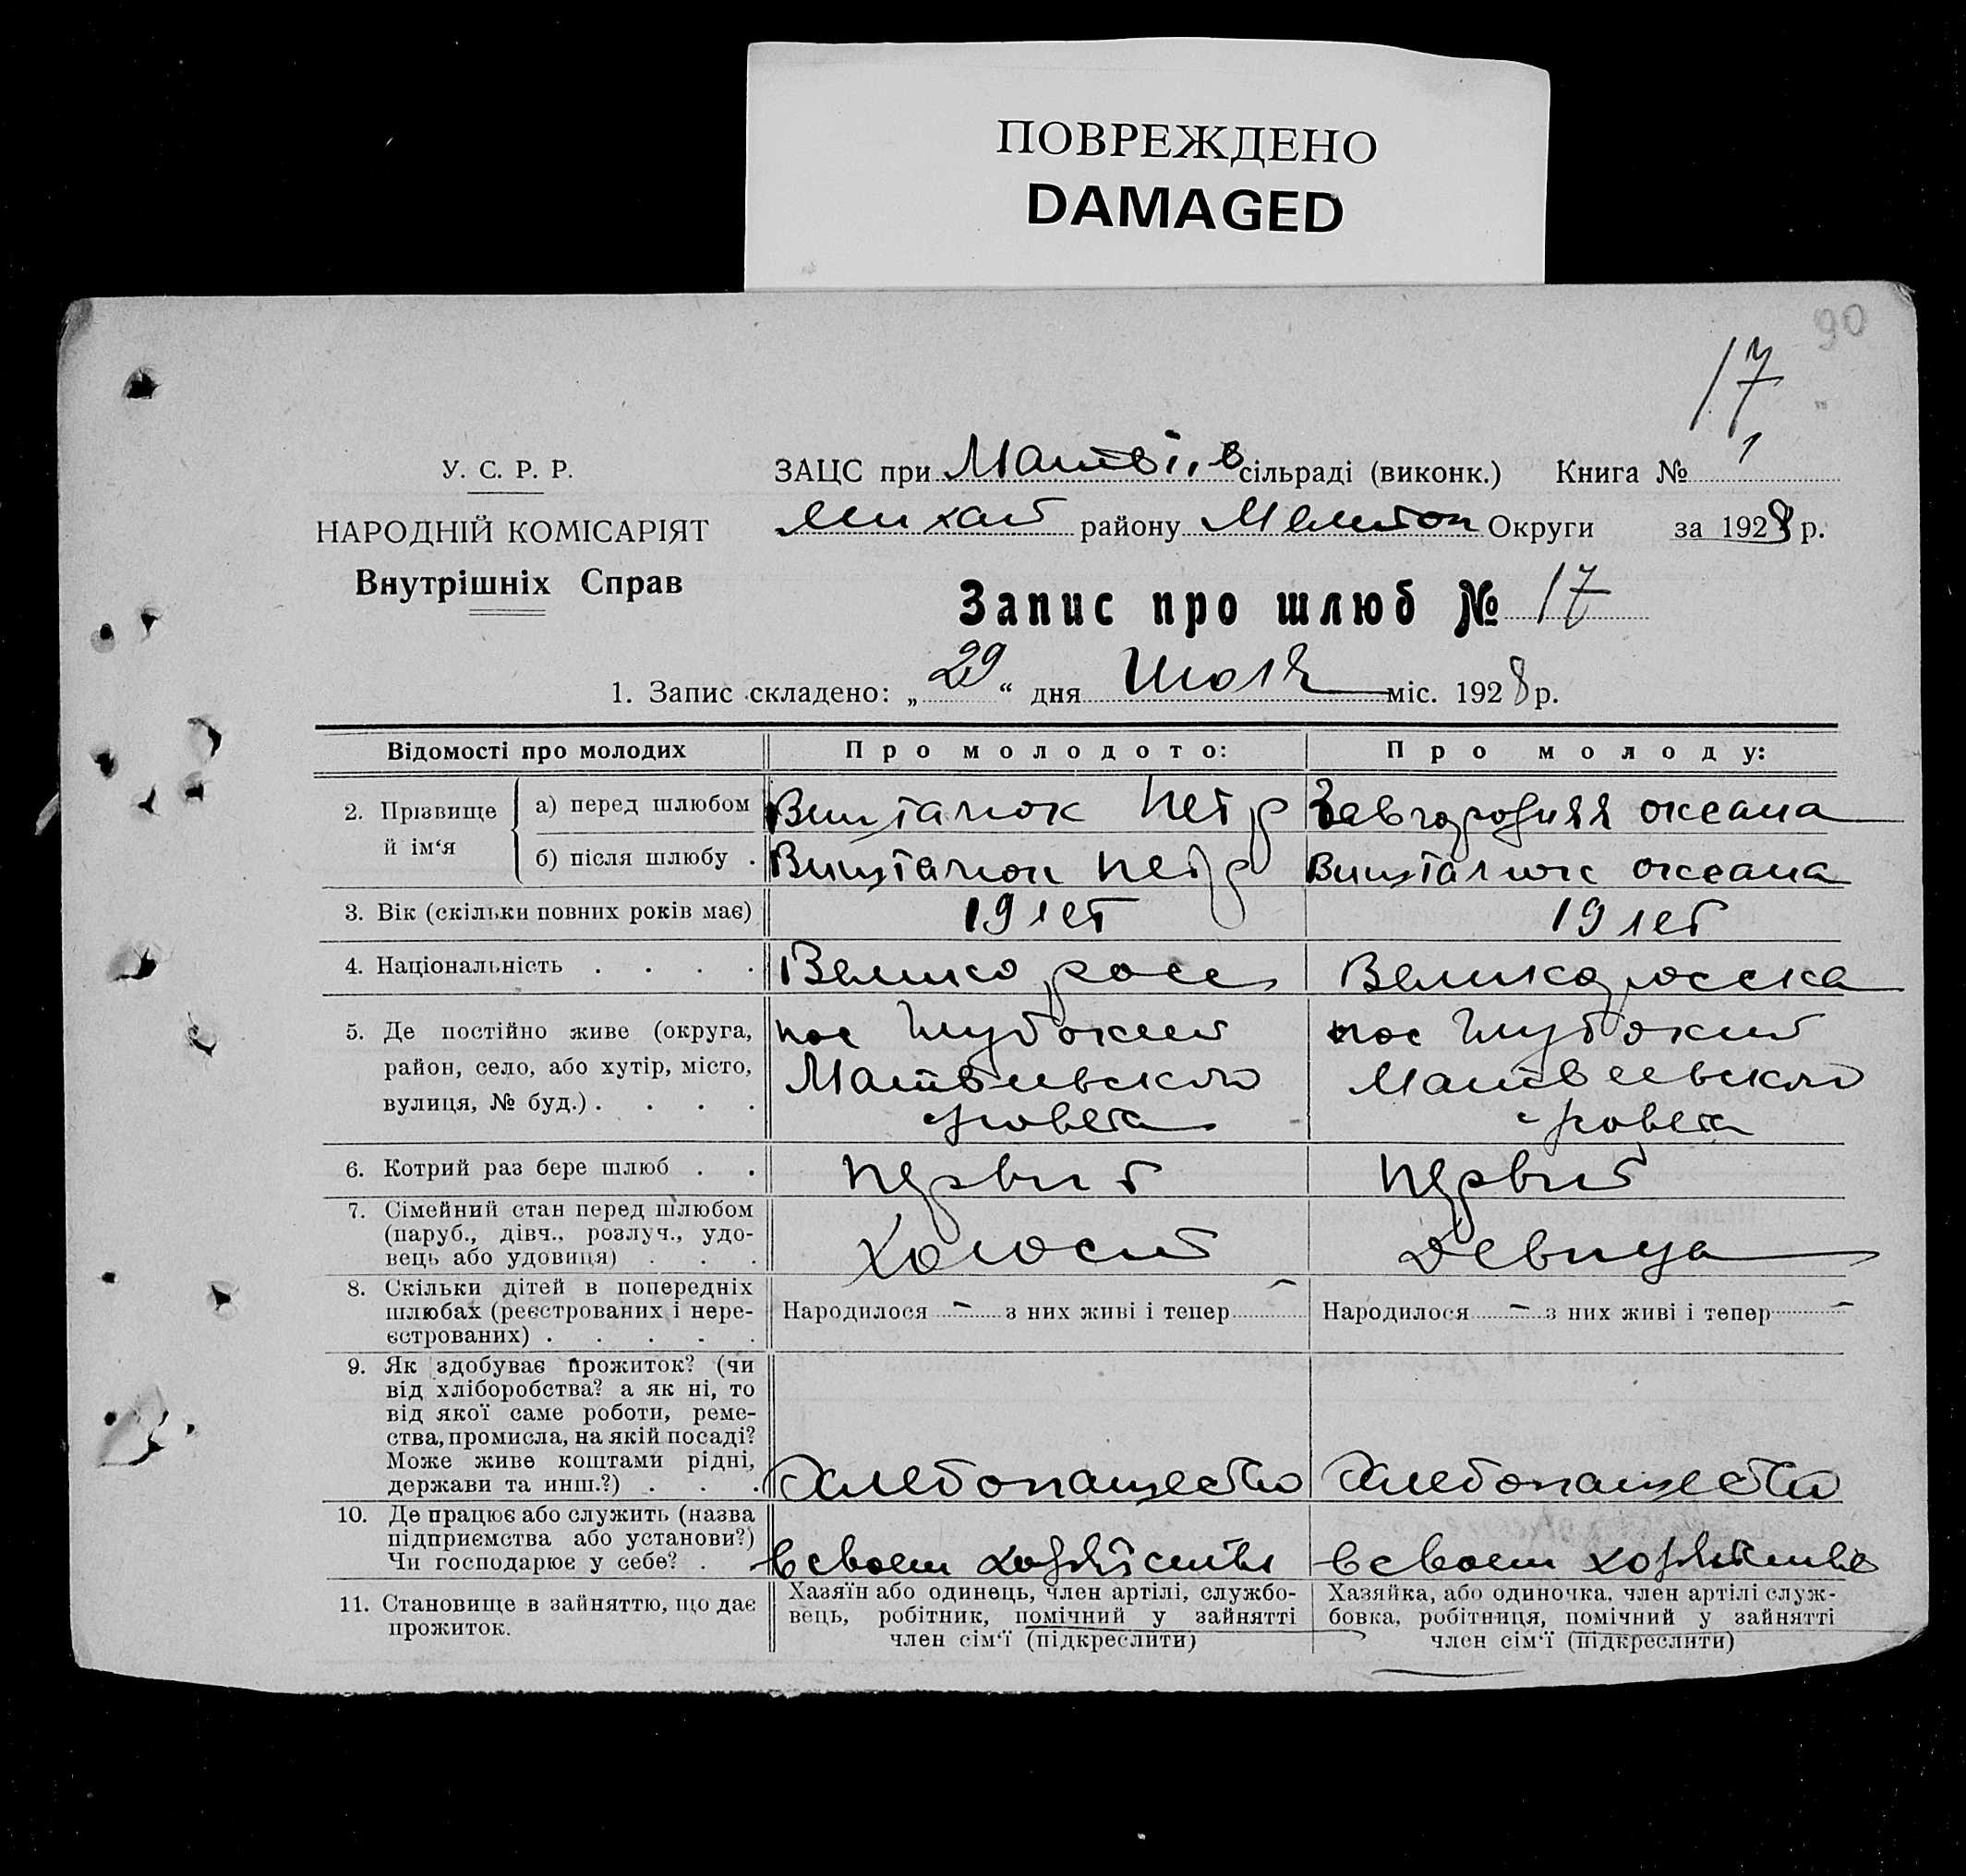 ПОВРЕЖДЕНО
DAMAGED
90
17
У. С. Р. Р.
НАРОДНІЙ КОМІСАРІЯТ
Внутрішніх Справ
ЗАЦС при Матвіїв сільраді (виконк.) Книга № 1
Михай району Мелитоп Округи за 1928 р.
Запис про шлюб № 17
1. Запис складено: „ 29 “ дня Июля міс. 1928 р.
Відомості про молодих Про молодого: Про молоду:
2. Прізвище й ім‘я
а) перед шлюбом Петр
б) після шлюбу . Петр
3. Вік (скільки повних років має) 19 лет 19 лет
4. Національність . . . . Великоросс Великоросска
5. Де постійно живе (округа, район, село, або хутір, місто, вулиця, № буд.) . . . .
пос Глубокий пос Глубокий
Матвеевского Матвеевского
с/совета с/совета
6. Котрий раз бере шлюб . . Первий Первий
7. Сімейний стан перед шлюбом
(паруб., дівч., розлуч., удо-
вець або удовиця) . . . Холост Девица
8. Скільки дітей в попередніх
шлюбах (реєстрованих і нере-
єстрованих) . . . . .
Народилося – з них живі і тепер – Народилося – з них живі і тепер –
9. Як здобуває прожиток? (чи
від хліборобства? а як ні, то
від якої саме роботи, реме-
ства, промисла, на якій посаді?
Може живе коштами рідні,
держави та инш.?) . . . Хлебопашество Хлебопашество
10. Де працює або служить (назва
підприємства або установи?)
Чи господарює у себе? . в своем хозяйстве в своем хозяйстве
11. Становище в зайняттю, що дає
прожиток.
Хазяїн або одинець, член артілі, службо-
вець, робітник, помічний у зайнятті
член сім‘ї (підкреслити)
Хазяйка, або одиночка, член артілі служ-
бовка, робітниця, помічний у зайнятті
член сім‘ї (підкреслити)